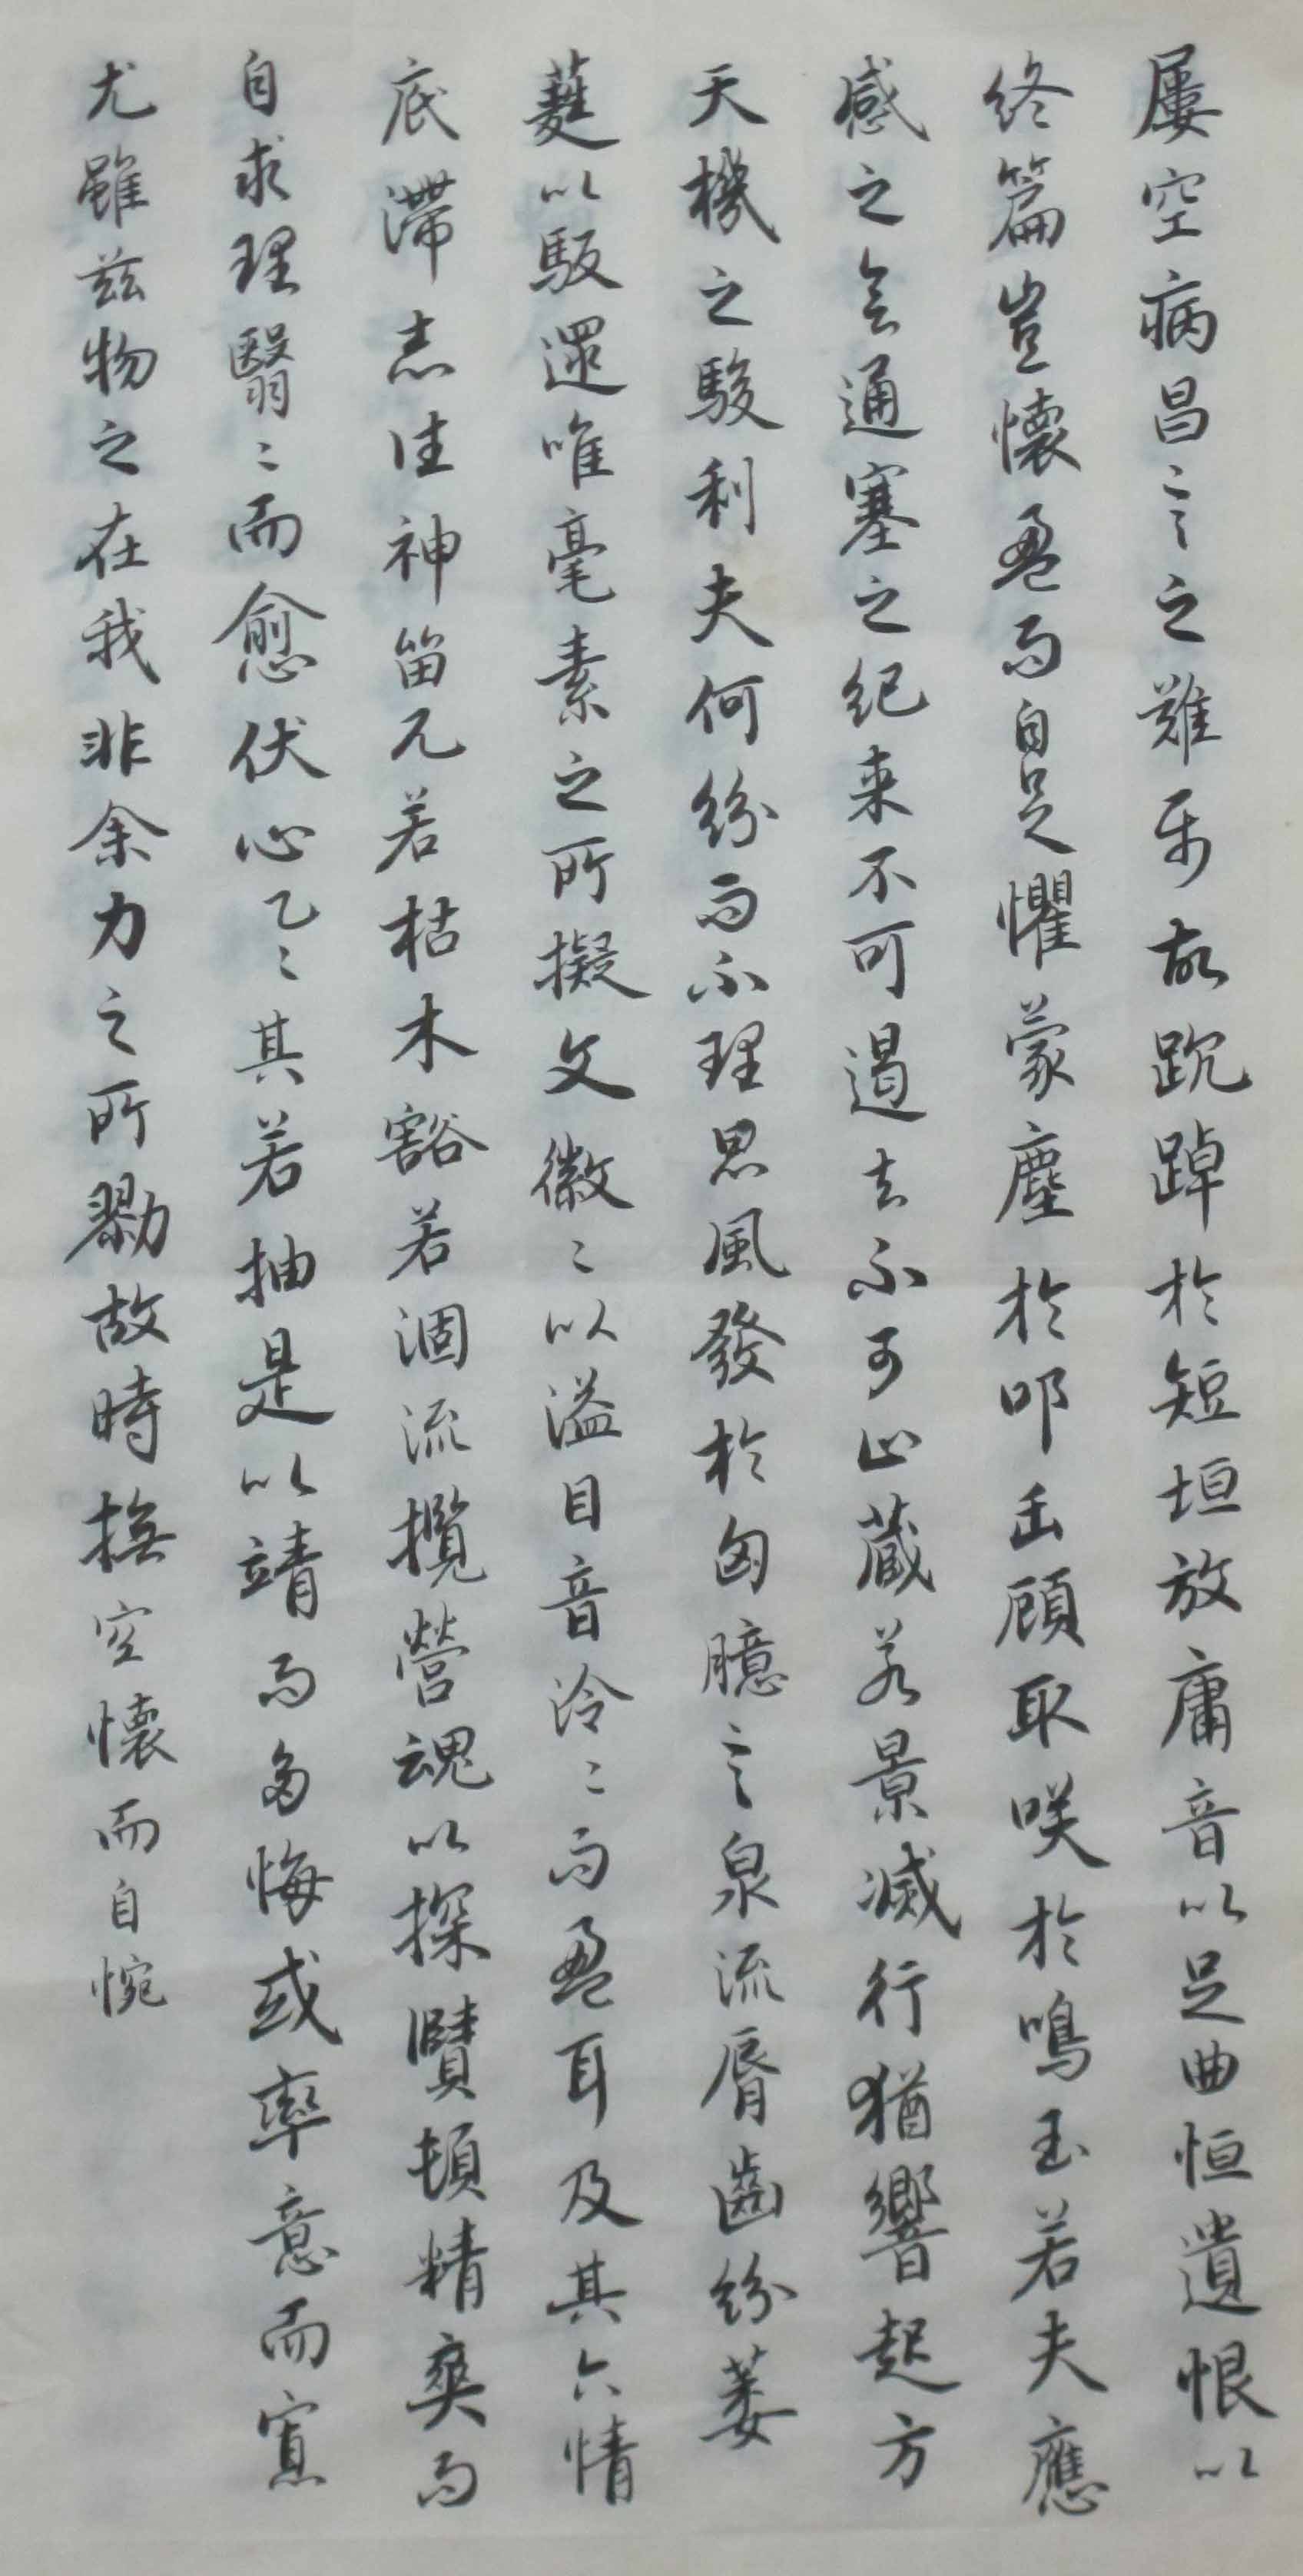 屢空病昌言之難屬故踸踔於短垣放庸音以足曲恒遺恨以
終篇豈懷盈而自足懼蒙塵於叩缶顧取咲於鳴玉若夫應
感之會通塞之紀来不可遏去不可止藏若景滅行猶響起方
天機之駿利夫何紛而不理思風發於匈臆言泉流脣齒紛葳
蕤以馺遝唯毫素之所擬文徽〻以溢目音泠〻而盈耳及其六情
底滯志往神留兀若枯木豁若涸流攬營魂以探賾頓精爽而
自求理翳〻而愈伏心乙〻其若抽是以竭而多悔或率意而寡
尤雖兹物之在我非余力之所勠故時撫空懷而自惋